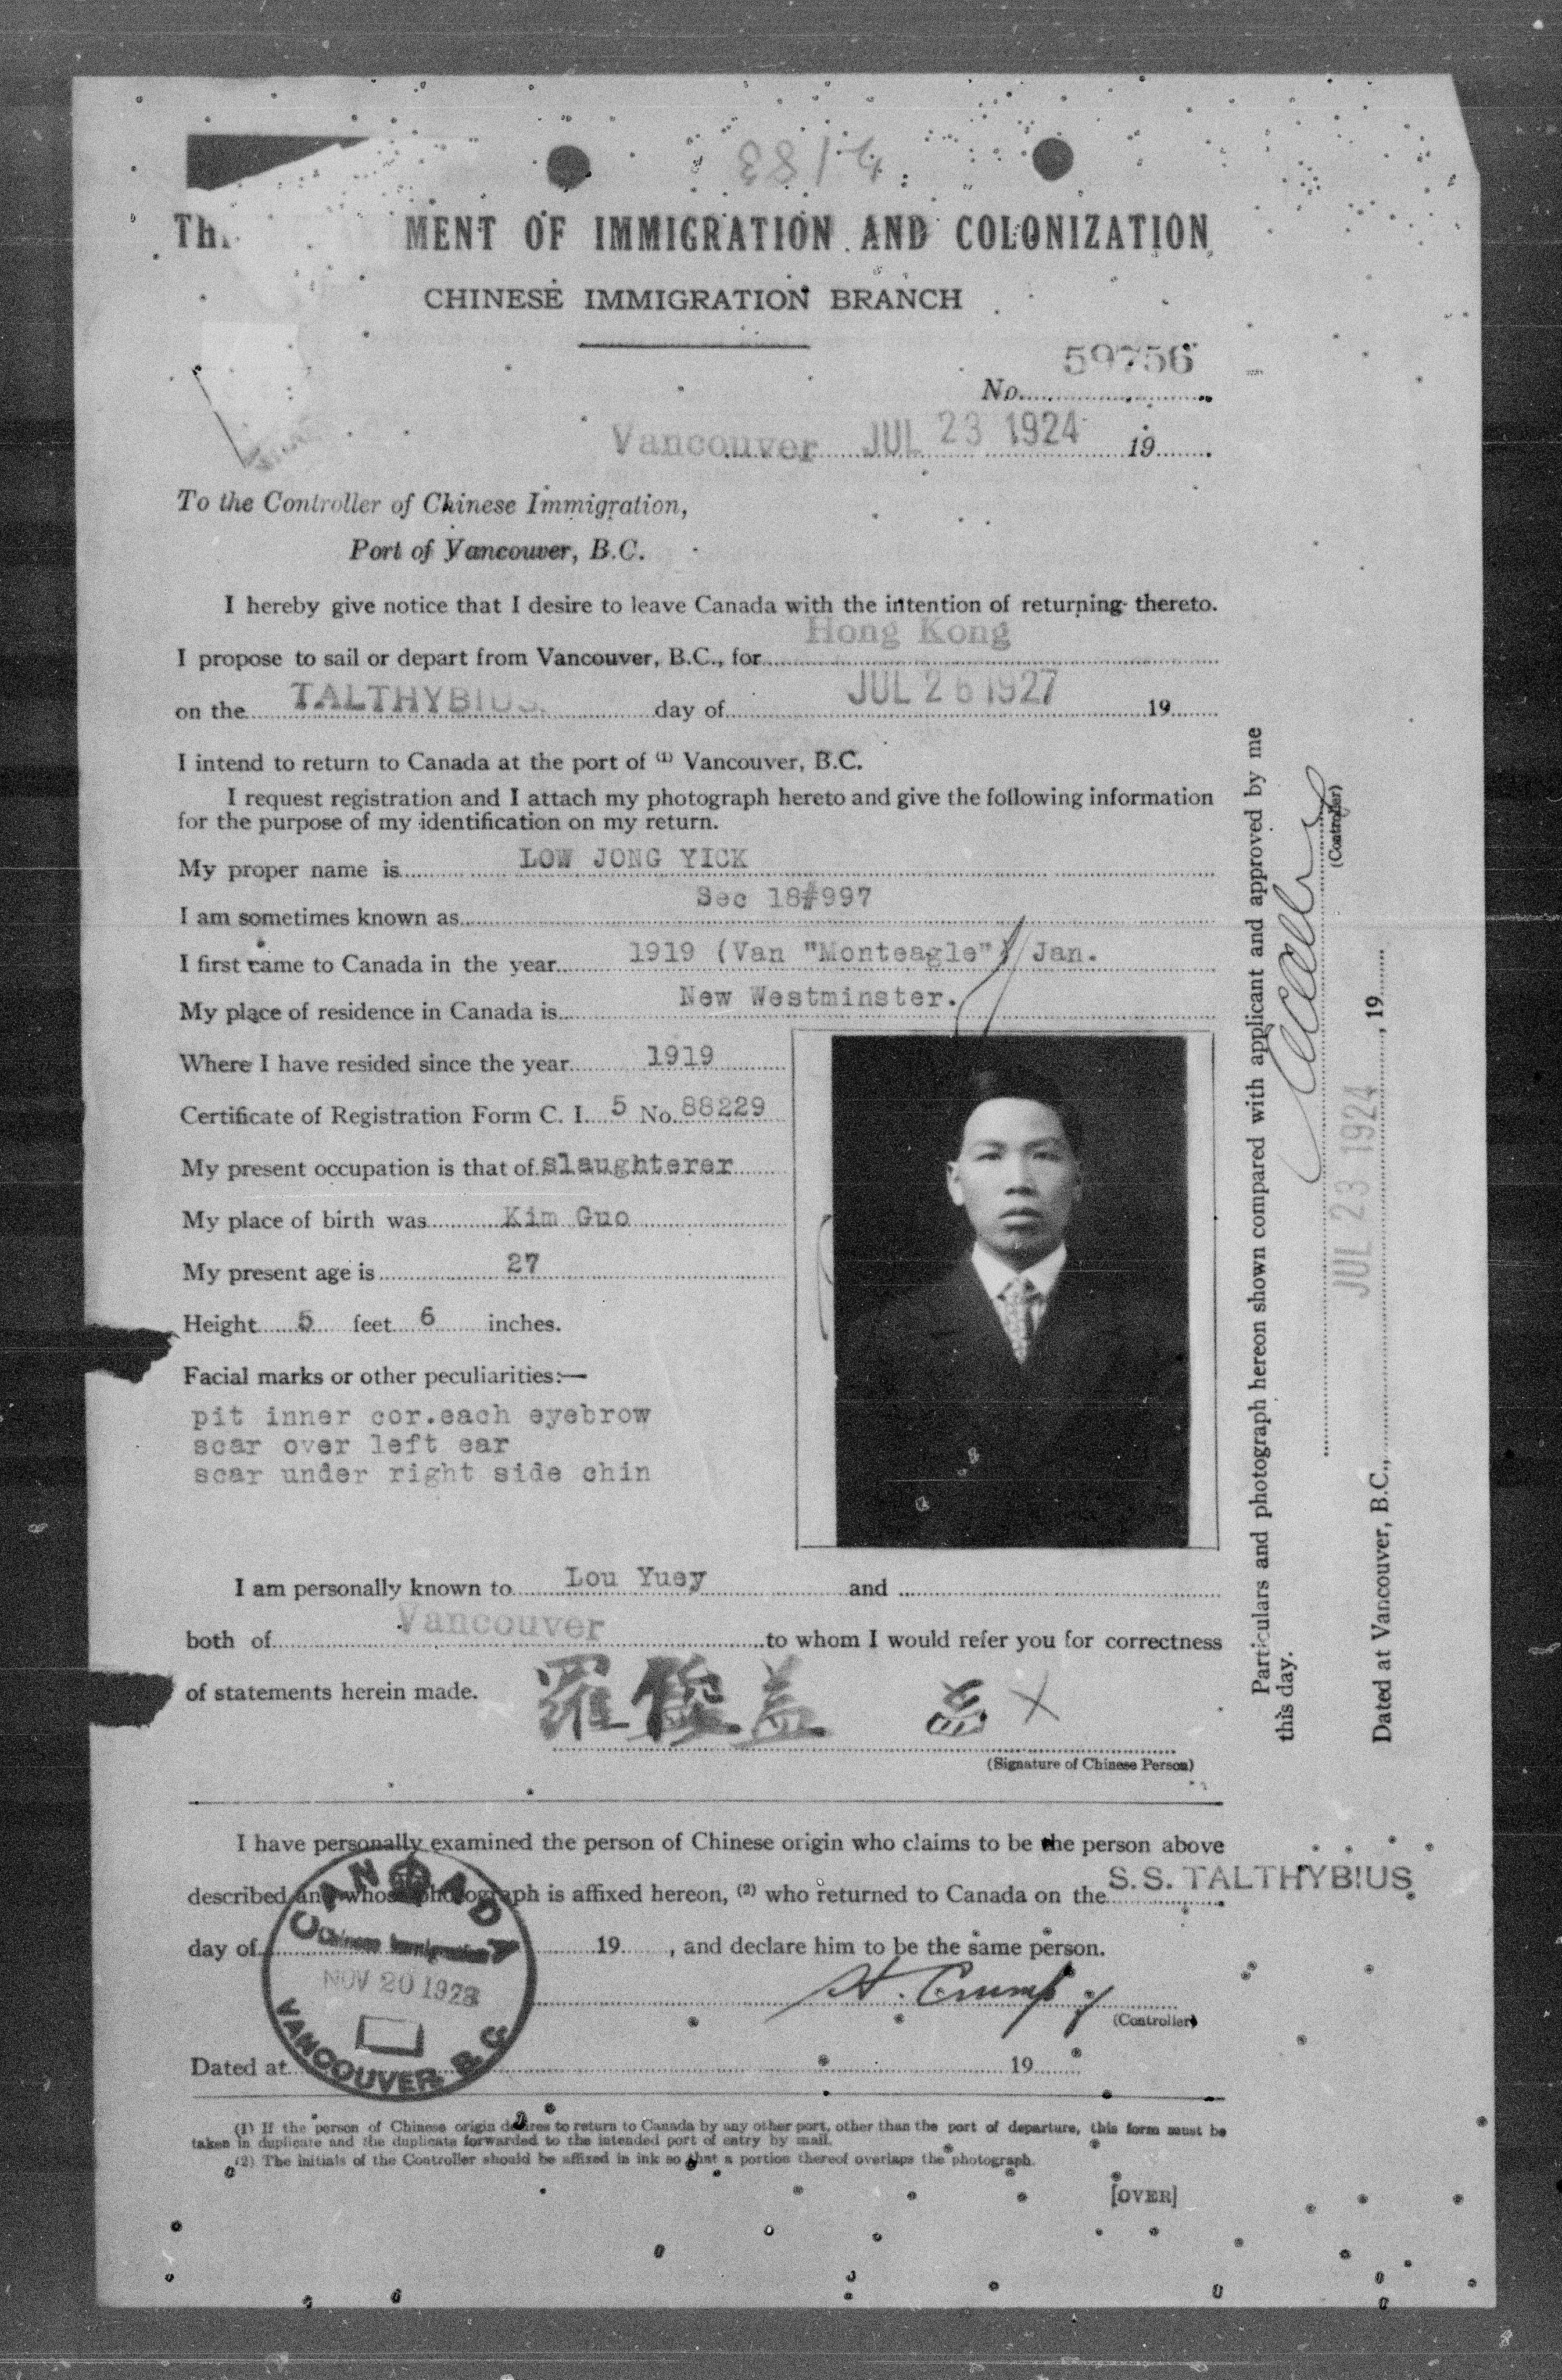 MENT OF IMMIGRATION AND COLONIZATION
CHINESE IMMIGRATION BRANCH
59756
No.
Vancouver JUL 23 1924 19
To the Controller of Chinese Immigration,
Port of Vancouver, B.C.
I hereby give notice that I desire to leave Canada with the intention of returning thereto.
Hong Kong
I propose to sail or depart from Vancouver, B.C., for
on the TALTHYBIUS day of JUL 26 1927 19
I intend to return to Canada at the port of (1) Vancouver, B.C.
I request registration and I attach my photograph hereto and give the following information
for the purpose of my identification on my return.
My proper name is LOW JONG YICK
Sec 18#997
I am sometimes known as
I first came to Canada in the year 1919 (Van "Monteagle") Jan.
My place of residence in Canada is New Westminster.
Where I have resided since the year 1919
Certificate of Registration Form C. I. 5 No. 88229
My present occupation is that of slaughterer
My place of birth was Kim Guo
My present age is 27
Height 5 feet 6 inches.
Facial marks or other peculiarities:—
pit inner cor.each eyebrow
scar over left ear
scar under right side chin
I am personally known to Lou Yuey and
both of Vancouver to whom I would refer you for correctness
of statements herein made.
羅 益
(Signature of Chinese Person)
Particulars and photograph hereon shown compared with applicant and approved by me
this day.
(Controller)
JUL 23 1924
Dated at Vancouver, B.C., , 19
I have personally examined the person of Chinese origin who claims to be the person above
described and whose photograph is affixed hereon, (2) who returned to Canada on the S.S. TALTHYBIUS
day of 19 , and declare him to be the same person.
CANADA
Chinese Immigration
NOV 20 192
VANCOUVER, B.C.
H. Crump
(Controller)
Dated at 19
(1) If the person of Chinese origin desires to return to Canada by any other port, other than the port of departure, this form must be
taken in duplicate and the duplicate forwarded to the intended port of entry by mail.
(2) The initials of the Controller should be affixed in ink so that a portion thereof overlaps the photograph.
[OVER]